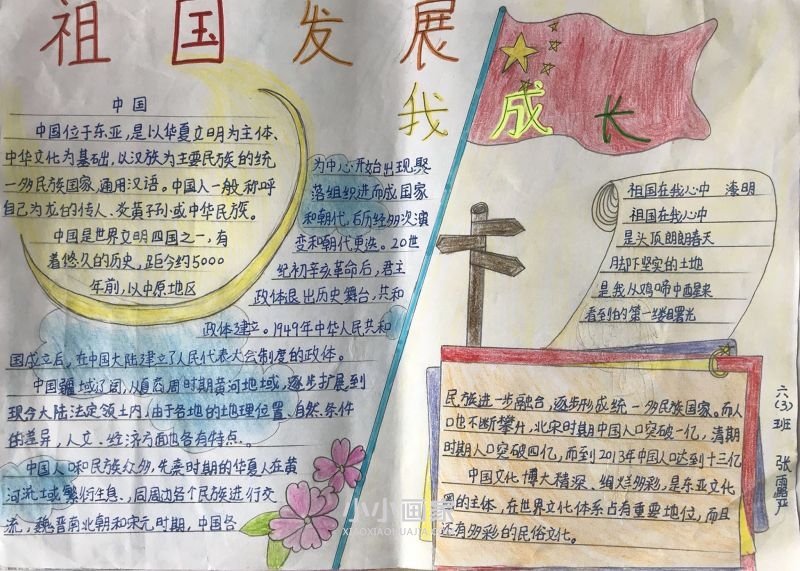 祖国发展
我成长
中国
中国位于东亚,是以华夏文明为主体、
中华文化为基础,以汉族为主要民族的统
一多民族国家,通用汉语。中国人一般称呼
自己为龙的传人、炎黄子孙或中华民族。
中国是世界文明四国之一,有
着悠久的历史,距今约5000
年前,以中原地区
为中心开始出现聚
落组织进而成国家
和朝代,后历经多次演
变和朝代更迭。20世
纪初辛亥革命后,君主
政体退出历史舞台,共和
政体建立。1949年中华人民共和
国成立后,在中国大陆建立了人民代表大会制度的政体。
中国疆域辽阔,从夏商周时期黄河地域,逐步扩展到
现今大陆法定领土内,由于各地的地理位置、自然条件
的差异,人文、经济方面也各有特点。
中国人口和民族众多,先秦时期的华夏人在黄
河流域繁衍生息、同周边各个民族进行交
流,魏晋南北朝和宋元时期,中国各
祖国在我心中 漆明
祖国在我心中
是头顶朗朗春天
脚下坚实的土地
是我从鸡啼中醒来
看到的第一缕曙光
民族进一步融合,逐步形成统一多民族国家。而人
口也不断攀升,北宋时期中国人口突破一亿,清朝
时期人口突破四亿,而到2013年中国人口达到十三亿
中国文化博大精深、绚烂多彩,是东亚文化
圈的主体,在世界文化体系占有重要地位,而且
还有多彩的民俗文化。
六(3)班 张雨露
小小画家
XIAOXIAOHUAJIA.C